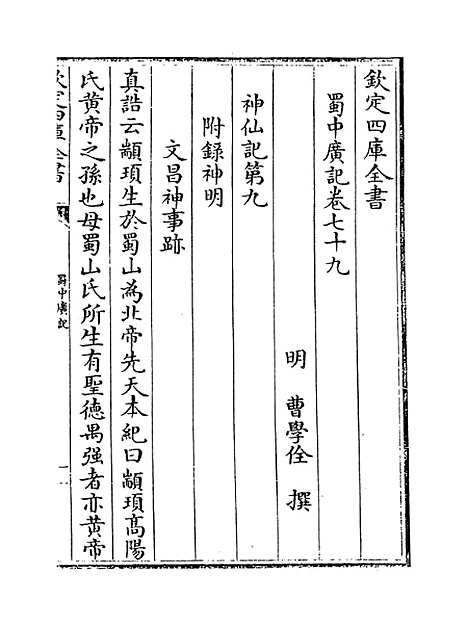 欽定四庫全書
蜀中廣記卷七十九
明 曹學佺 撰
神仙記第九
附錄神明
文昌神事跡
真誥云顓頊生於蜀山為北帝先天本紀曰顓頊高陽
氏黃帝之孫也母蜀山氏所生有聖德禺强者亦黃帝
欽定四庫全書
蜀中廣記
一